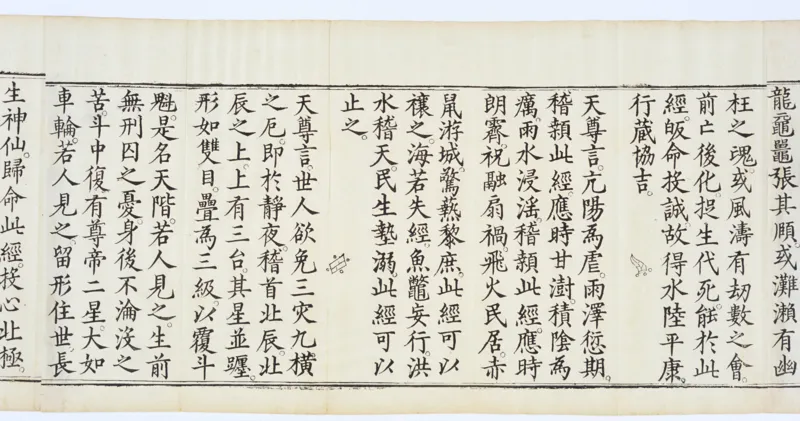 龍黿鼉張其頤。或灘瀨有幽
枉之魂。或風濤有劫數之會。
前亡後化。捉生代死。能於此
經。皈命投誠。故得水陸平康。
行藏協吉。
天尊言。亢陽為虐。雨澤愆期。
稽顙此經。應時甘澍。積陰為
癘。雨水浸淫。稽顙此經。應時
朗霽。祝融扇禍。飛火民居。赤
鼠游城。驚爇黎庶。此經可以
禳之。海若失經。魚鼈妄行。洪
水稽天。民生墊溺。此經可以
止之。
天尊言。世人欲免三灾九橫
之厄。即於靜夜。稽首北辰。北
辰之上。上有三台。其星並躔。
形如雙目。疊為三級。以覆斗
魁。是名天階。若人見之。生前
無刑囚之憂。身後不淪沒之
苦。斗中復有尊帝二星。大如
車輪。若人見之。留形住世。長
生神仙。歸命此經。投心北極。